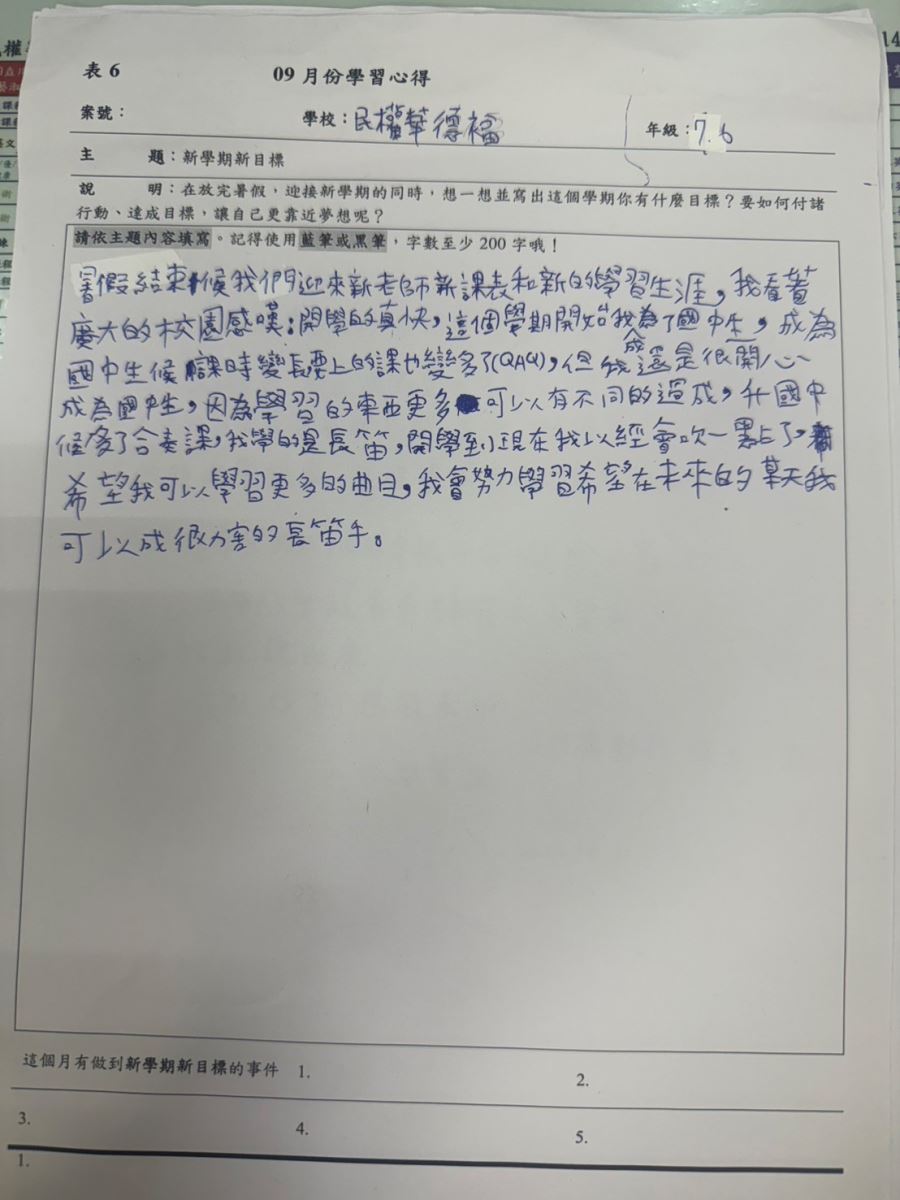 表 6
09 月份學習心得
案號：
學校：民權華德福
年級：7.6
主 題：新學期新目標
說 明：在放完暑假，迎接新學期的同時，想一想並寫出這個學期你有什麼目標？要如何付諸
行動、達成目標，讓自己更靠近夢想呢？
請依主題內容填寫。記得使用藍筆或黑筆，字數至少 200 字哦！
暑假結束候我們迎來新老師新課表和新的學習生涯，我看著
廣大的校園感嘆：開學的真快，這個學期開始我為了國中生，成為
成
國中生候課時變長要上的課也變多了(QAQ)，但我還是很開心
成為國中生，因為學習的東西更多可以有不同的過成，升國中
候多了合奏課，我學的是長笛，開學到現在我以經會吹一點了，
希望我可以學習更多的曲目，我會努力學習希望在未來的某天我
可以成很力害的長笛手。
這個月有做到新學期新目標的事件 1.
2.
3.
4.
5.
1.